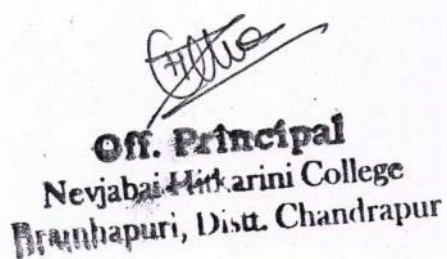 Off. Principal
Nevjabai Hitkarini College
Bramhapuri, Distt. Chandrapur